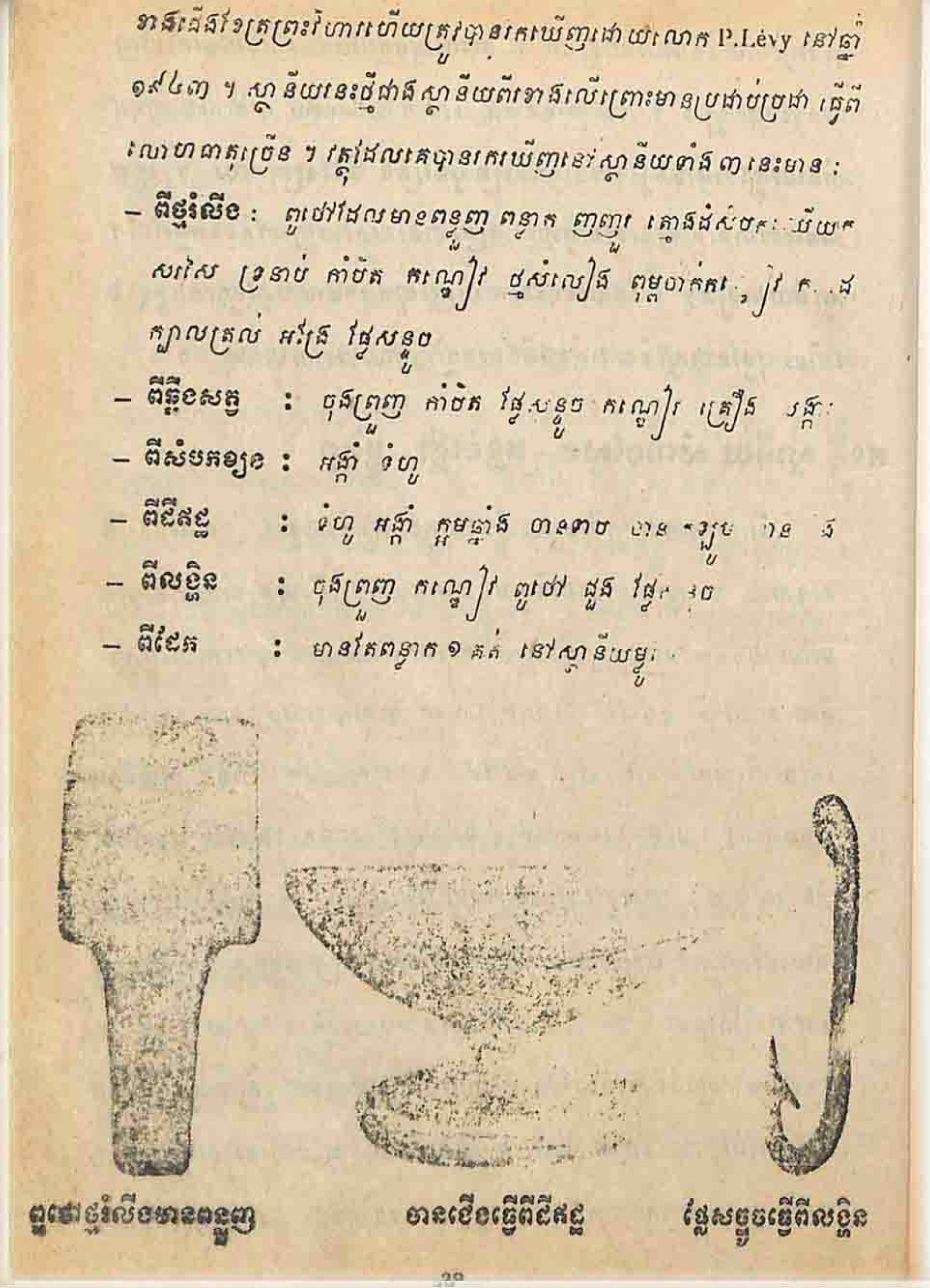 ខាងជើងខែត្រព្រះវិហារហើយត្រូវបានរកឃើញដោយលោក P.Lévy នៅឆ្នាំ
១៩៤៣ ។ ស្ថានីយនេះថ្មីជាងស្ថានីយពីរខាងលើព្រោះមានប្រដាប់ប្រដា ធ្វើពី
លោហធាតុច្រើន ។ វត្ថុដែលគេបានរកឃើញនៅស្ថានីយទាំង ៣ នេះមាន :
– ពីថ្មរំលីង : ពូថៅដែលមានពន្លួញ ពន្លាក ញញួរ
សរសៃ ទ្រនាប់ កាំបិត កណ្ដៀវ ថ្មសំលៀង ពុម្ពចាក់
ក្បាលត្រល់ អង្រែ ផ្លែសន្ទូច
– ពីឆ្អឹងសត្វ : ចុងព្រួញ កាំបិត ផ្លែសន្ទូច កណ្ដៀវ គ្រឿង
– ពីសំបកខ្យង : អង្កាំ ទំហូ
– ពីដីឥដ្ឋ : ទំហូ អង្កាំ ក្អមឆ្នាំង ចានទាប ចាន
– ពីលង្ហិន : ចុងព្រួញ កណ្ដៀវ ពូថៅ ដួង
– ពីដែក : មានតែពន្លាក ១ គត់ នៅស្ថានីយ
ពូថៅថ្មរំលីងមានពន្លួញ ចានជើងធ្វើពីដីឥដ្ឋ ផ្លែសន្ទូចធ្វើពីលង្ហិន